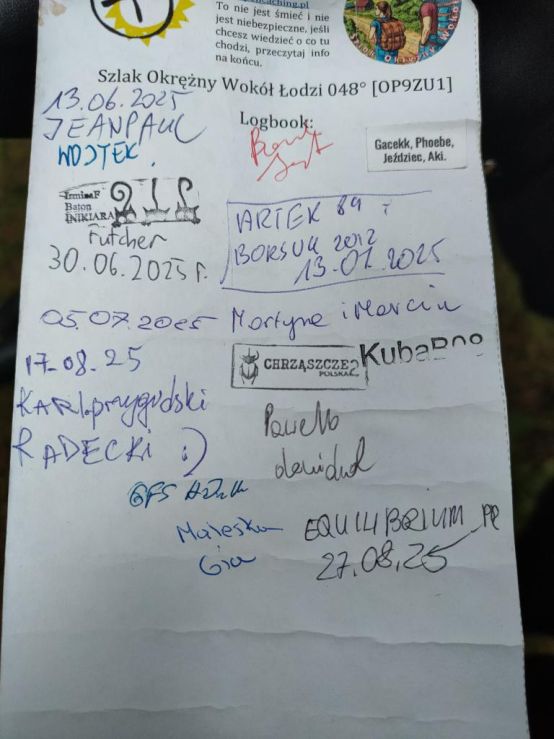 To nie jest śmieć i nie
jest niebezpieczne, jeśli
chcesz wiedzieć o co tu
chodzi, przeczytaj info
na końcu.
Szlak Okrężny Wokół Łodzi 048° [OP9ZU1]
Logbook:
13.06.2025
JEANPAUL
WOJTEK.
Gacekk, Phoebe,
Jeździec, Aki.
IrminaF
Baton
INIKIARA
Futcher
30.06.2025 r.
ARTEK 84 i
BORSUK 2012
13.07.2025
05.07.2025 Martyna i Marcin
17.08.25
CHRZĄSZCZE2
POLSKA
KARI.przygodski
RADECKI :)
Pawello
GFS
Maleska
Gia
EQUILIBRIUM_PR
27.08.25